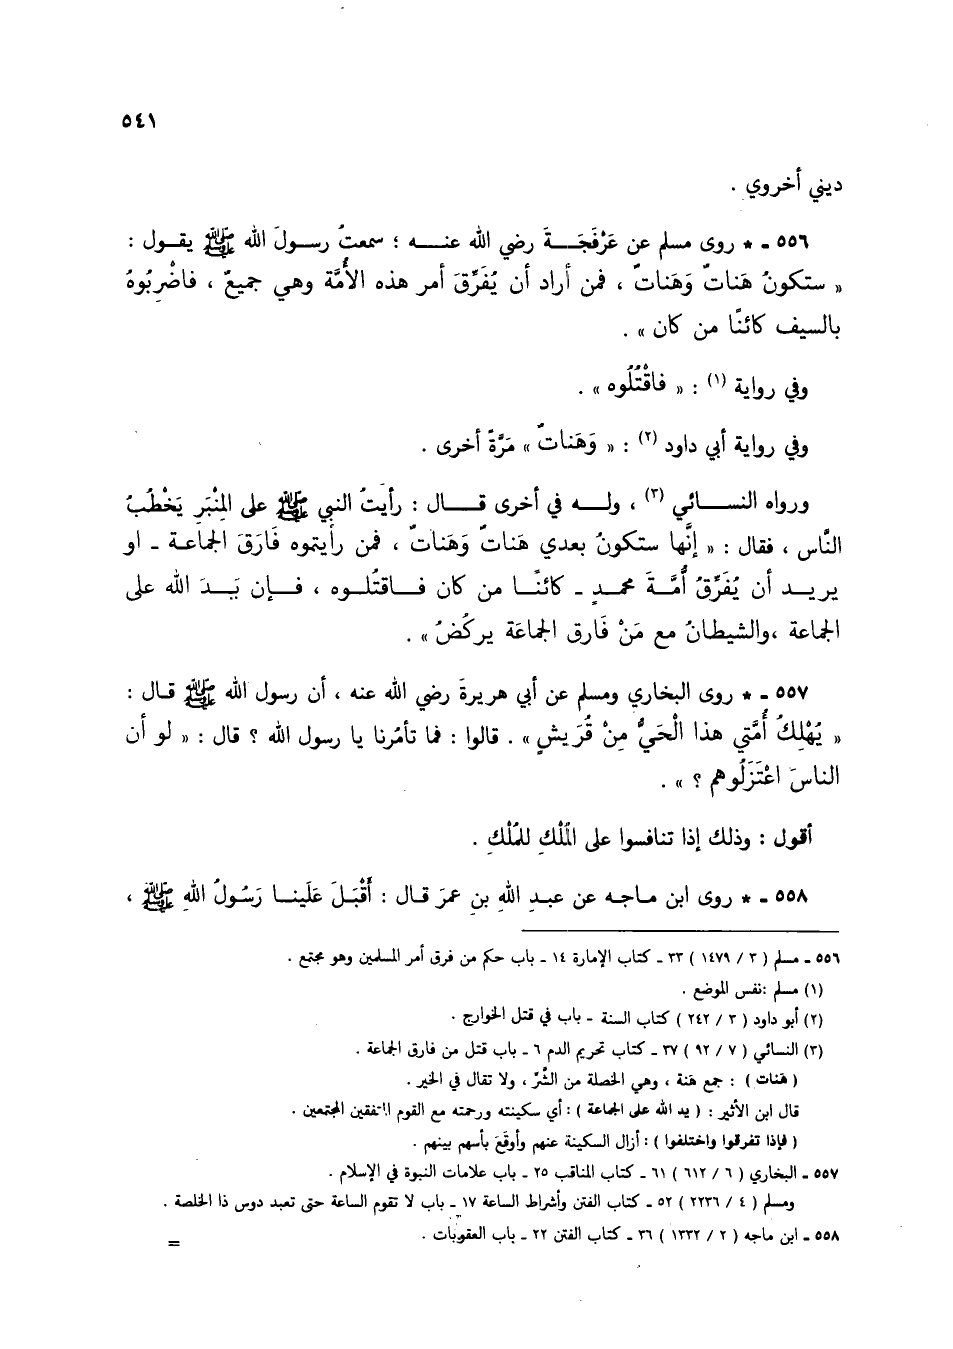 ٥٤١
ديني أخروي .
٥٥٦ ـ * روى مسلم عن عَرْفَجَـةَ رضي الله عنـه ؛ سمعتُ رسـولَ الله ﷺ يقـول :
« ستكونُ هَناتٌ وَهَناتٌ ، فمن أراد أن يُفَرِّقَ أمر هذه الأُمَّة وهي جميعٌ ، فاضْرِبُوهُ
بالسيف كائنًا من كان » .
وفي رواية (١) : « فاقْتُلُوه » .
وفي رواية أبي داود (٢) : « وَهَناتٌ » مَرَّةً أخرى .
ورواه النسـائي (٣) ، ولـه في أخرى قـال : رأيَتُ النبي ﷺ على المِنْبَرِ يَخْطُبُ
النَّاس ، فقال : « إنَّها ستكونُ بعدي هَناتٌ وَهَناتٌ ، فمن رأيتموه فَارَقَ الجماعـة ـ او
يريـد أن يُفَرِّقُ أُمَّـةَ محمـدٍ ـ كائنًـا من كان فـاقتُلـوه ، فـإن يَـدَ الله على
الجماعة ،والشيطانُ مع مَنْ فَارق الجماعَة يركُضُ » .
٥٥٧ ـ * روى البخاري ومسلم عن أبي هريرةَ رضي الله عنه ، أن رسول الله ﷺ قـال :
« يُهْلِكُ أُمَّتي هذا الْحَيُّ مِنْ قُرَيشٍ » . قالوا : فما تأمُرنا يا رسول الله ؟ قال : « لو أن
الناسَ اعْتَزَلُوهم ؟ » .
أقول : وذلك إذا تنافسوا على المُلْكِ للمُلْكِ .
٥٥٨ ـ * روى ابن مـاجـه عن عبـدِ اللهِ بنِ عمرَ قـال : أَقْبَـلَ عَلَينـا رَسُولُ الله ﷺ ،
٥٥٦ ـ مسلم ( ٣ / ١٤٧٩ ) ٣٣ ـ كتاب الإمارة ١٤ ـ باب حكم من فرق أمر المسلمين وهو مجتمع .
(١) مسلم :نفس الموضع .
(٢) أبو داود ( ٣ / ٢٤٢ ) كتاب السنة ـ باب في قتل الخوارج .
(٣) النسائي ( ٧ / ٩٢ ) ٣٧ ـ كتاب تحريم الدم ٦ ـ باب قتل من فارق الجماعة .
( هَنات ) : جمع هَنة ، وهي الخصلة من الشَّرِّ ، ولا تقال في الخير .
قال ابن الأثير : ( يد الله على الجماعة ) : أي سكينته ورحمته مع القوم المتفقين المجتمعين .
( فإذا تفرقوا واختلفوا ) : أزال السكينة عنهم وأوقَعَ بأسهم بينهم .
٥٥٧ ـ البخاري ( ٦ / ٦١٢ ) ٦١ ـ كتاب المناقب ٢٥ ـ باب علامات النبوة في الإسلام .
ومسلم ( ٤ / ٢٢٣٦ ) ٥٢ ـ كتاب الفتن وأشراط الساعة ١٧ ـ باب لا تقوم الساعة حتى تعبد دوس ذا الخلصة .
٥٥٨ ـ ابن ماجه ( ٢ / ١٣٣٢ ) ٣٦ ـ كتاب الفتن ٢٢ ـ باب العقوبات .
=